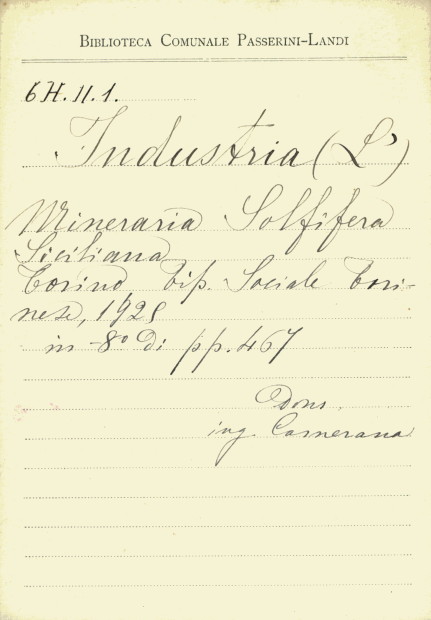 BIBLIOTECA COMUNALE PASSERINI-LANDI
6H.II.1.
Industria (L')
Mineraria Solfifera
Siciliana
Torino, Tip. Sociale Tori-
nese, 1925
in -8º di pp. 467
Dono
ing. Camerana